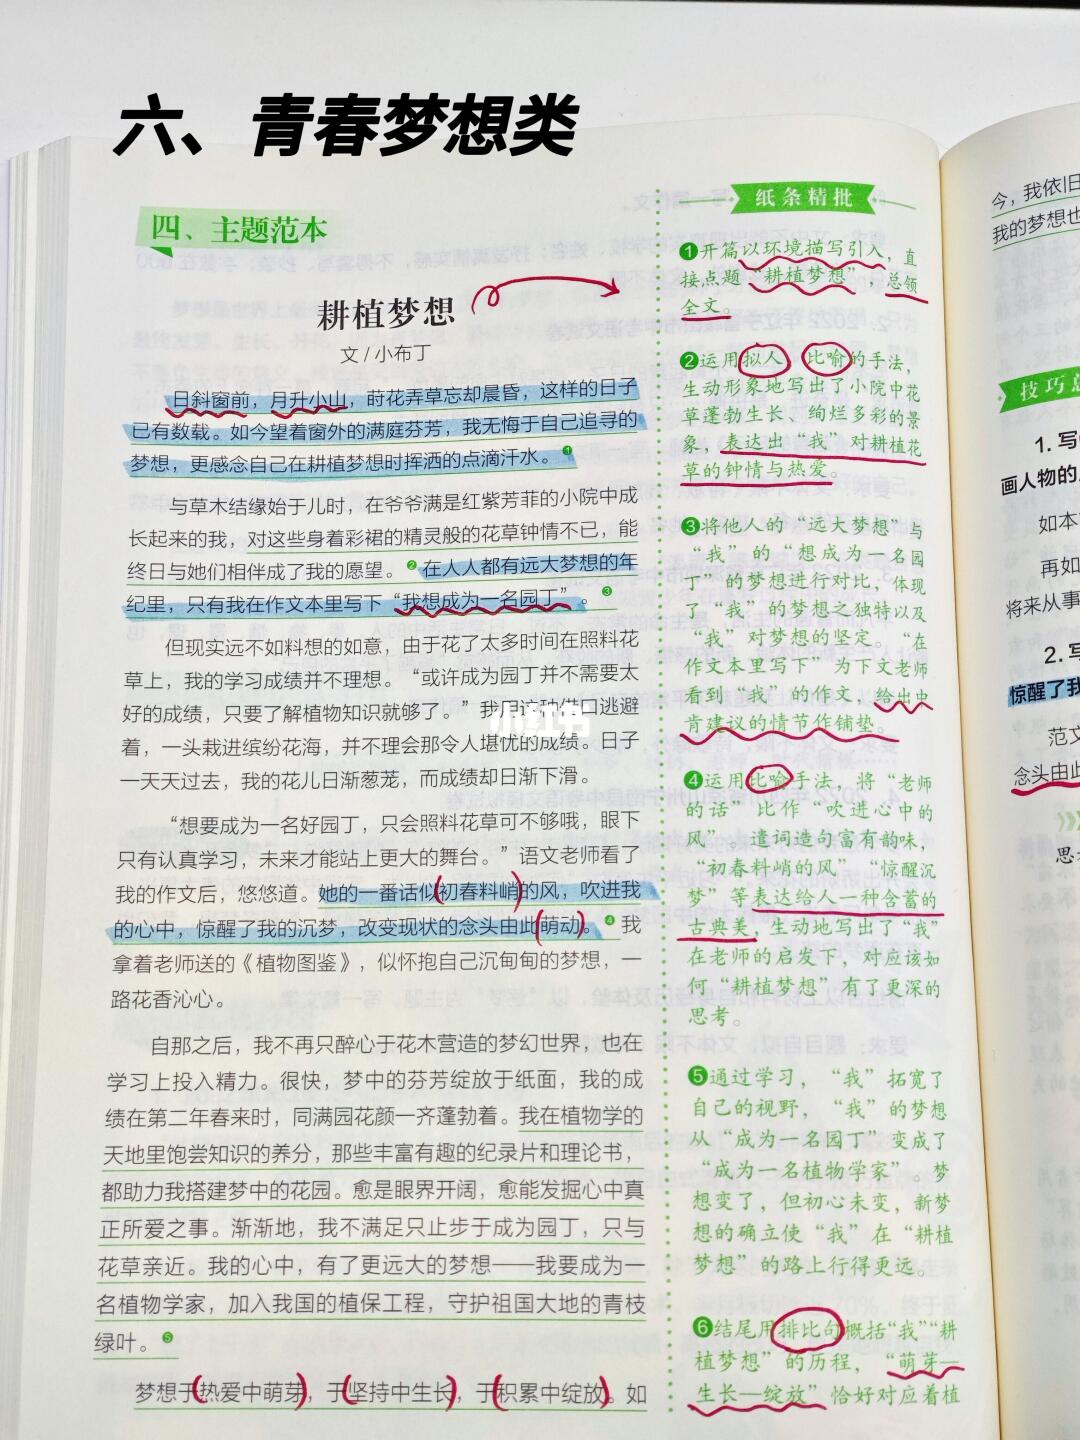 六、青春梦想类
四、主题范本
耕植梦想
文/小布丁
日斜窗前，月升小山，莳花弄草忘却晨昏，这样的日子
已有数载。如今望着窗外的满庭芬芳，我无悔于自己追寻的
梦想，更感念自己在耕植梦想时挥洒的点滴汗水。❶
与草木结缘始于儿时，在爷爷满是红紫芳菲的小院中成
长起来的我，对这些身着彩裙的精灵般的花草钟情不已，能
终日与她们相伴成了我的愿望。❷在人人都有远大梦想的年
纪里，只有我在作文本里写下“我想成为一名园丁”。❸
但现实远不如料想的如意，由于花了太多时间在照料花
草上，我的学习成绩并不理想。“或许成为园丁并不需要太
好的成绩，只要了解植物知识就够了。”我用这种借口逃避
着，一头栽进缤纷花海，并不理会那令人堪忧的成绩。日子
一天天过去，我的花儿日渐葱茏，而成绩却日渐下滑。
“想要成为一名好园丁，只会照料花草可不够哦，眼下
只有认真学习，未来才能站上更大的舞台。”语文老师看了
我的作文后，悠悠道。她的一番话似初春料峭的风，吹进我
的心中，惊醒了我的沉梦，改变现状的念头由此萌动。❹我
拿着老师送的《植物图鉴》，似怀抱自己沉甸甸的梦想，一
路花香沁心。
自那之后，我不再只醉心于花木营造的梦幻世界，也在
学习上投入精力。很快，梦中的芬芳绽放于纸面，我的成
绩在第二年春来时，同满园花颜一齐蓬勃着。我在植物学的
天地里饱尝知识的养分，那些丰富有趣的纪录片和理论书，
都助力我搭建梦中的花园。愈是眼界开阔，愈能发掘心中真
正所爱之事。渐渐地，我不满足只止步于成为园丁，只与
花草亲近。我的心中，有了更远大的梦想——我要成为一
名植物学家，加入我国的植保工程，守护祖国大地的青枝
绿叶。❺
梦想于热爱中萌芽，于坚持中生长，于积累中绽放。如
小红书
纸条精批
❶开篇以环境描写引入，直
接点题“耕植梦想”，总领
全文。
❷运用拟人、比喻的手法，
生动形象地写出了小院中花
草蓬勃生长、绚烂多彩的景
象，表达出“我”对耕植花
草的钟情与热爱。
❸将他人的“远大梦想”与
“我”的“想成为一名园
丁”的梦想进行对比，体现
了“我”的梦想之独特以及
“我”对梦想的坚定。“在
作文本里写下”为下文老师
看到“我”的作文，给出中
肯建议的情节作铺垫。
❹运用比喻手法，将“老师
的话”比作“吹进心中的
风”。遣词造句富有韵味，
“初春料峭的风”“惊醒沉
梦”等表达给人一种含蓄的
古典美，生动地写出了“我”
在老师的启发下，对应该如
何“耕植梦想”有了更深的
思考。
❺通过学习，“我”拓宽了
自己的视野，“我”的梦想
从“成为一名园丁”变成了
“成为一名植物学家”。梦
想变了，但初心未变，新梦
想的确立使“我”在“耕植
梦想”的路上行得更远。
❻结尾用排比句概括“我”“耕
植梦想”的历程，“萌芽—
生长—绽放”恰好对应着植
今，我依旧
我的梦想也
技巧总
1. 写
画人物的
如本
再如
将来从事
2. 写
惊醒了我
范文
念头由此
思